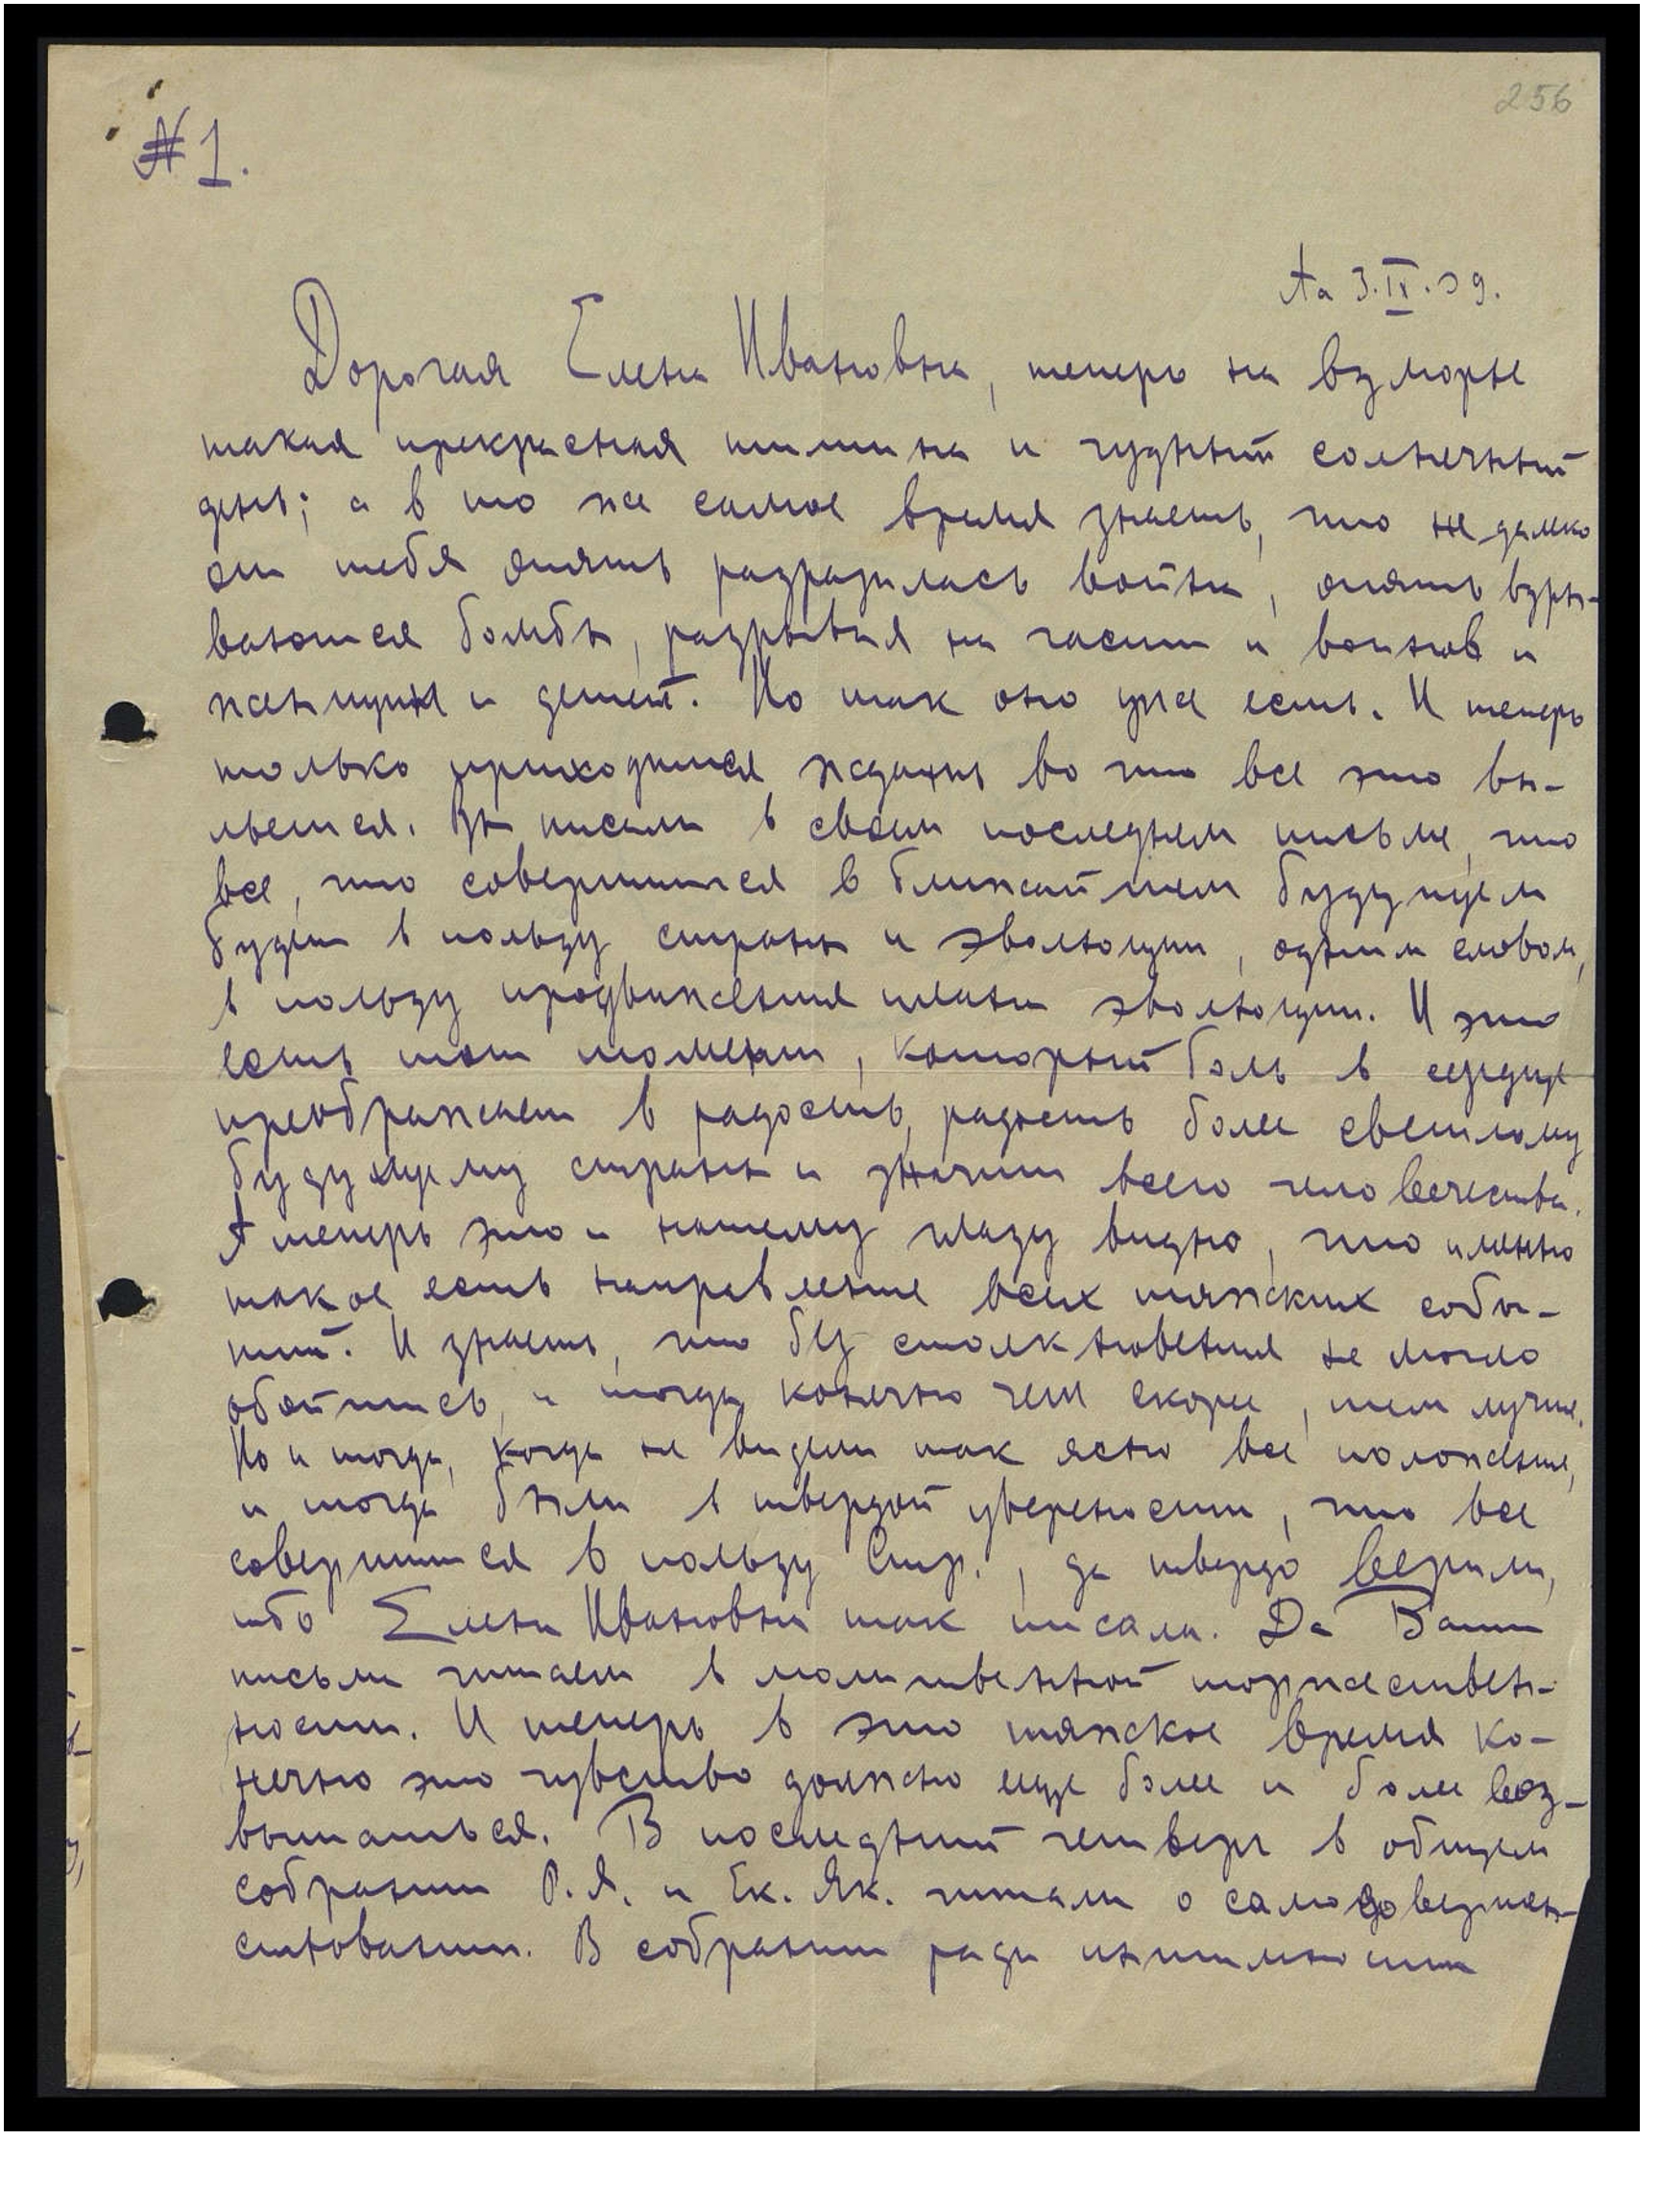 256
№ 1.
Аа 3.IX.39.
Дорогая Елена Ивановна, теперь на взморье
такая прекрасная тишина и чудный солнечный
день; а в то же самое время знаешь, что не далеко
от тебя опять разразилась война, опять взры-
ваются бомбы, разрывая на части и воинов и
женщин и детей. Но так оно уже есть. И теперь
только приходится ждать во что все это вы-
льется. Вы писали в своем последнем письме, что
все, что совершится в ближайшем будущем
будет в пользу страны и эволюции, одним словом,
в пользу продвижения плана эволюции. И это
есть тот момент, который боль в сердце
преображает в радость, радость более светлому
будущему страны и значит всего человечества.
А теперь это и нашему глазу видно, что именно
такое есть направление всех тяжких собы-
тий. И знаешь, что без столкновения не могло
обойтись, и тогда конечно чем скорее, тем лучше.
Но и тогда, когда не видели так ясно все положение,
и тогда были в твердой уверености, что все
совершится в пользу Стр., да твердо верили,
ибо Елена Ивановна так писала. Да Ваши
письма читаем в молитвенной торжествен-
ности. И теперь в это тяжкое время ко-
нечно это чувство должно еще более и более воз-
вышаться. В последний четверг в общем
собрании Р.Я. и Ек. Як. читали о самосовершен-
ствовании. В собрании ради интимности